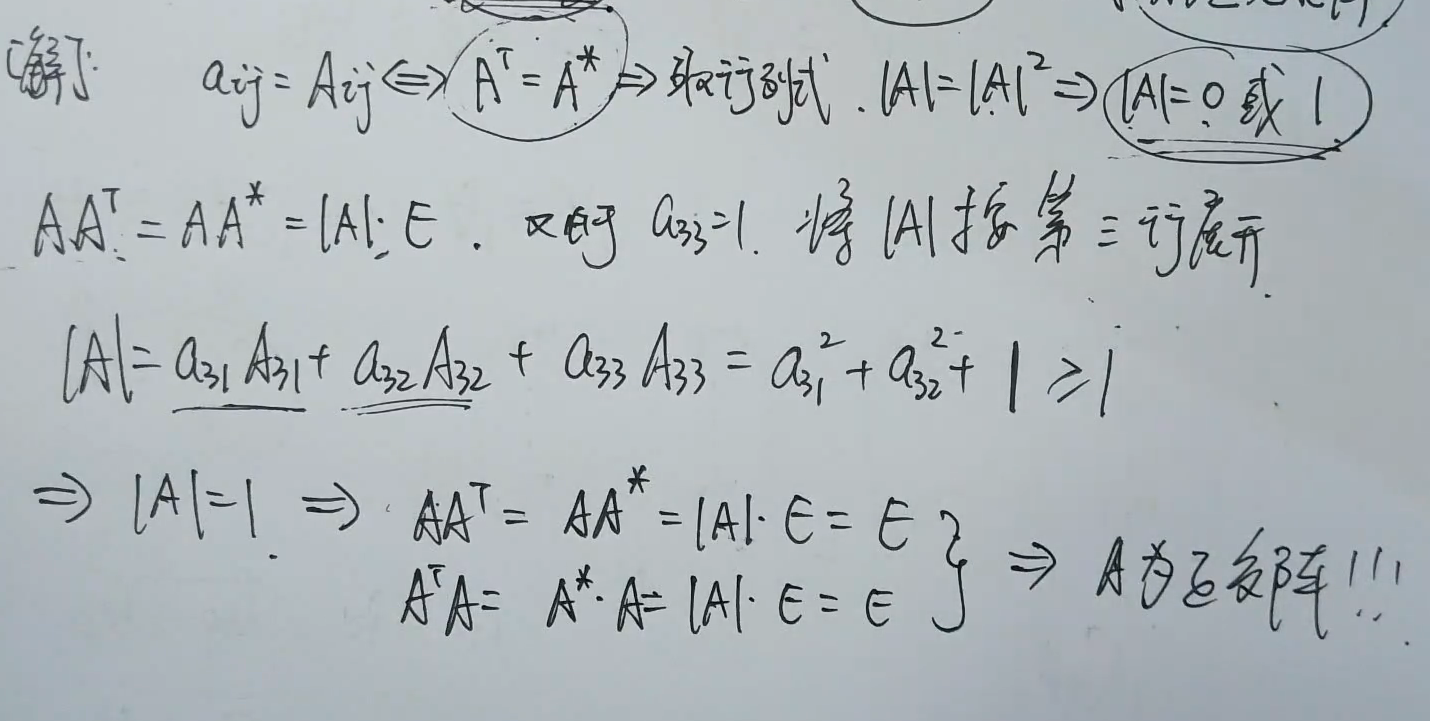 [解]: aij = Aij ⟺ A^T = A* ⟹ 取行列式. |A| = |A|² ⟹ |A| = 0 或 1
AA^T = AA* = |A|·E. 又由于 a33=1. 将 |A| 按第三行展开.
|A| = a31 A31 + a32 A32 + a33 A33 = a31² + a32² + 1 ≥ 1
⟹ |A| = 1. ⟹ AA^T = AA* = |A|·E = E } ⟹ A为正交矩阵!!!
A^T A = A*·A = |A|·E = E